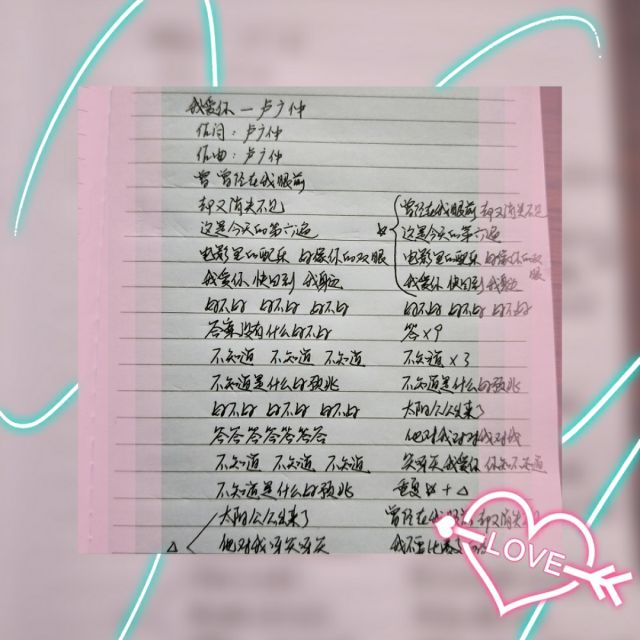 我爱你 — 卢广仲
作词：卢广仲
作曲：卢广仲
曾 曾经在我眼前
却又消失不见
这是今天的第六遍
电影里的配乐 好像你的双眼
我爱你 快回到 我身边
好不好 好不好 好不好
答案没有什么好不好
不知道 不知道 不知道
不知道是什么好预兆
好不好 好不好 好不好
答答答答答答答
不知道 不知道 不知道
不知道是什么好预兆
太阳公公出来了
△ 他对我呀笑呀笑
曾经在我眼前 却又消失不见
☆ 这是今天的第六遍
电影里的配乐 好像你的双眼
我爱你 快回到 我身边
好不好 好不好 好不好
答×9
不知道×3
不知道是什么好预兆
太阳公公出来了
他对我对对我对我
笑呀笑 我爱你 你知不知道
重复 ☆ + △
曾经在我眼前 却又消失不
我不
LOVE